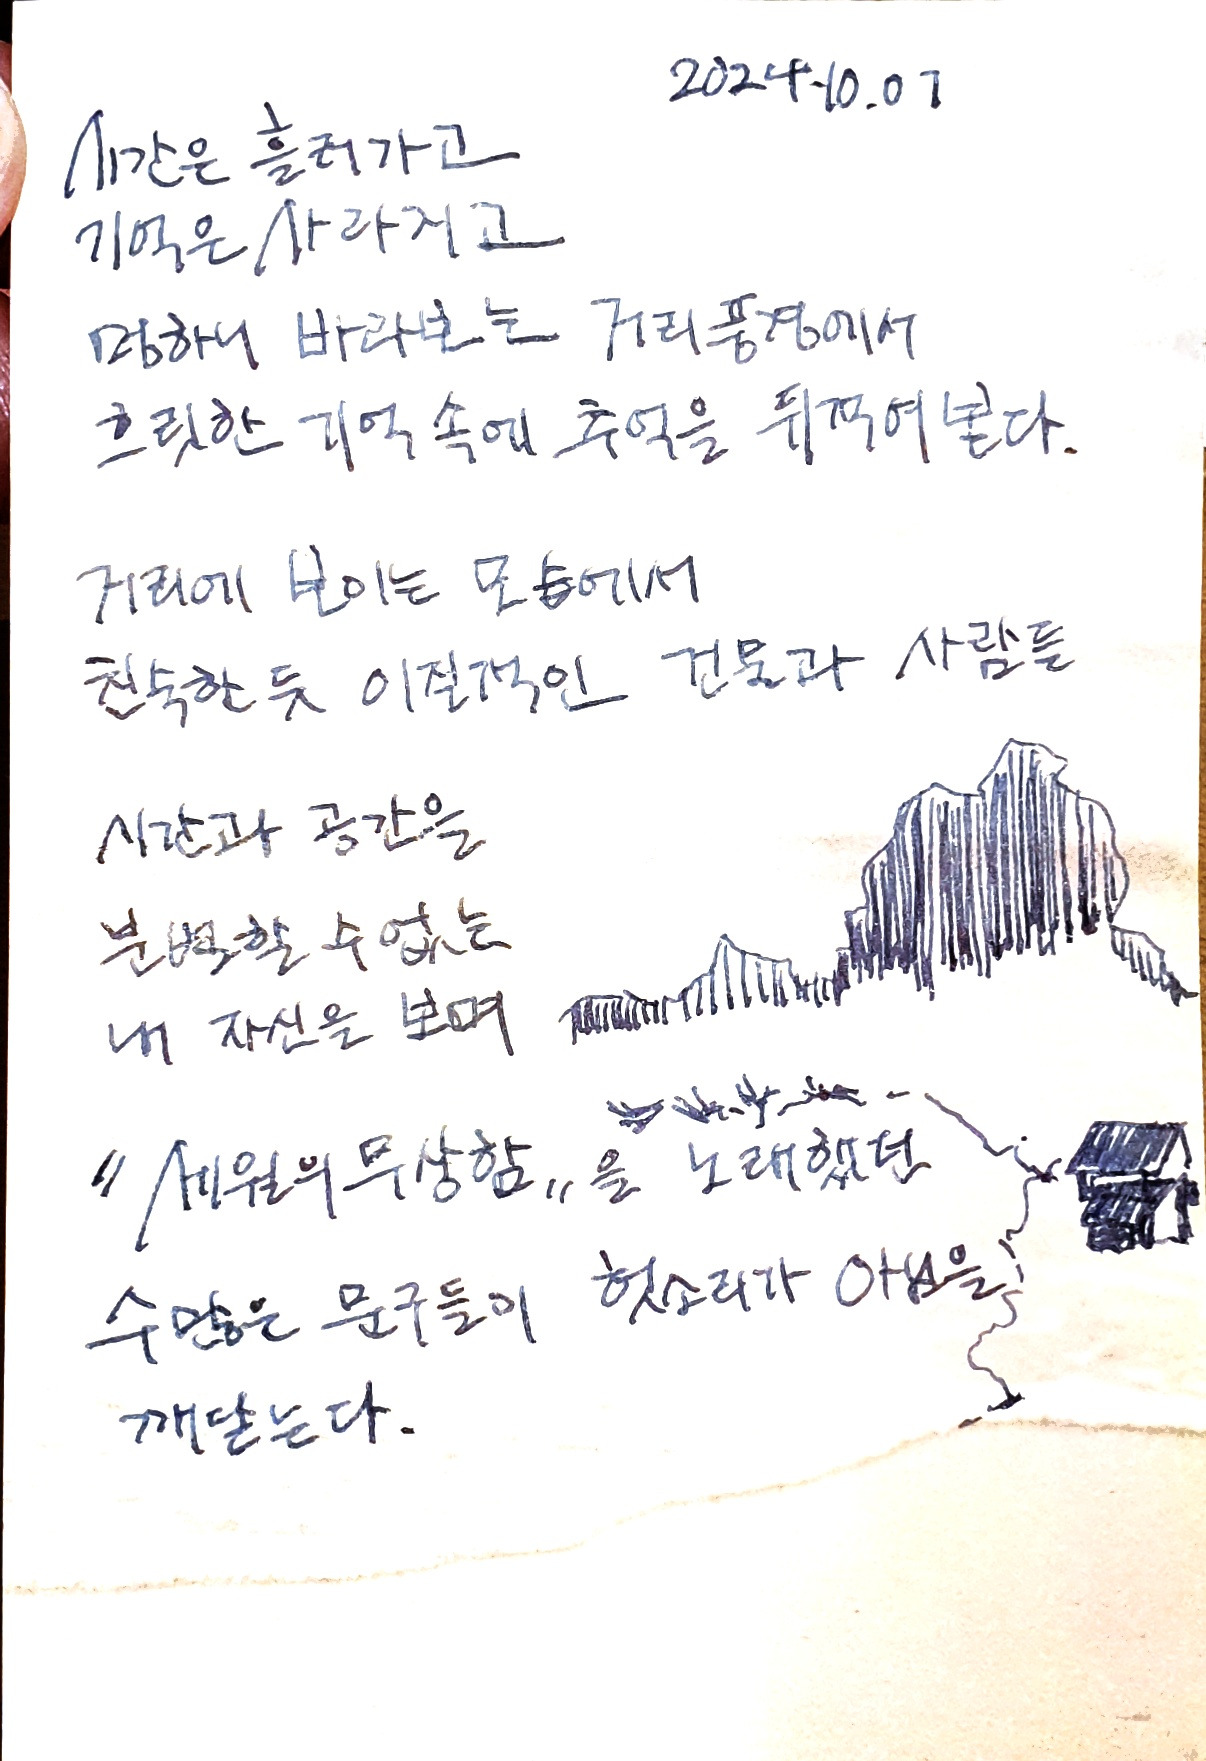 2024.10.07
시간은 흘러가고
기억은 사라지고
멍하니 바라보는 거리풍경에서
흐릿한 기억 속에 추억을 뒤적여 본다.
거리에 보이는 모습에서
친숙한 듯 이질적인 건물과 사람들
시간과 공간을
분별할 수 없는
내 자신을 보며
"세월의 무상함"을 노래했던
수많은 문구들이 헛소리가 아님을
깨닫는다.